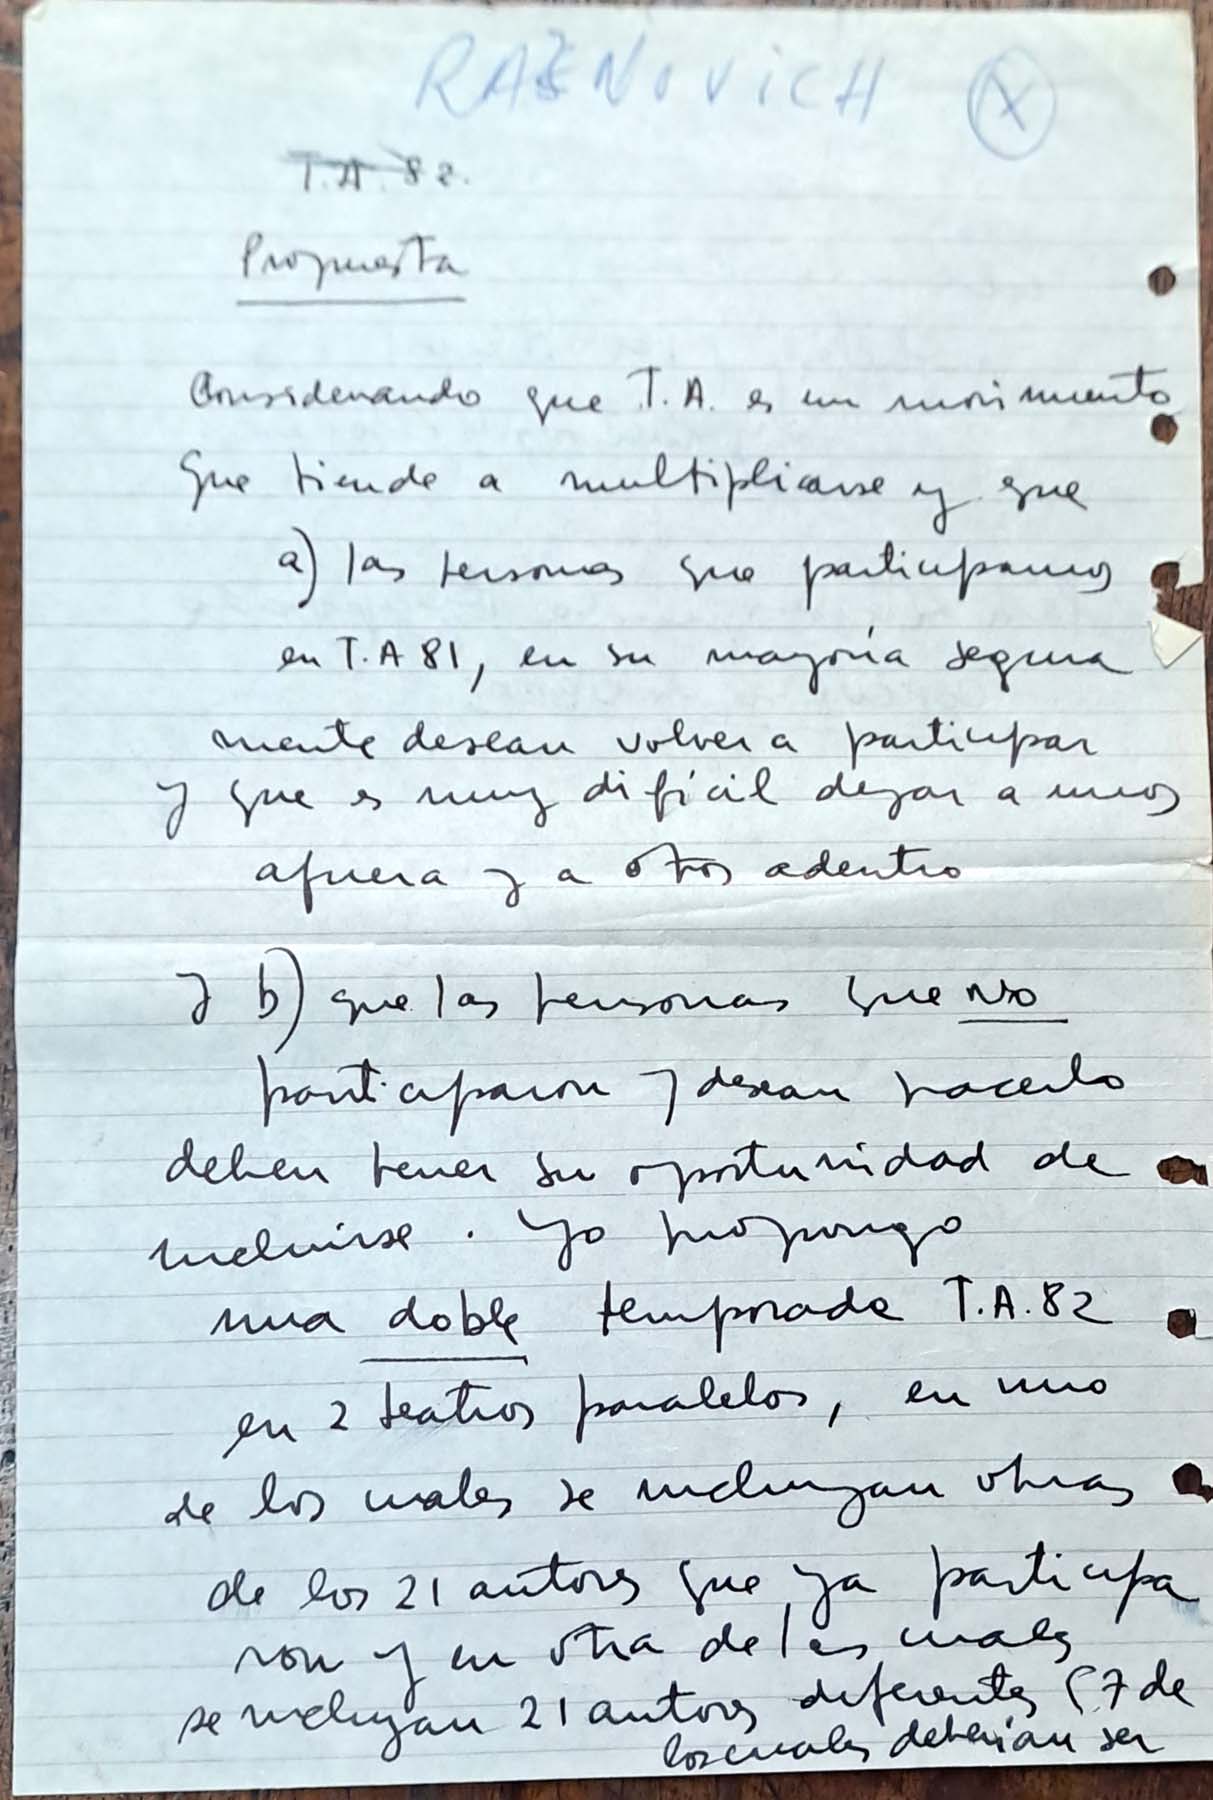 RAZNOVICH X
T.A. 82.
Propuesta
Considerando que T.A. es un movimiento
que tiende a multiplicarse y que
a) las personas que participamos
en T.A 81, en su mayoría segura
mente desean volver a participar
y que es muy difícil dejar a unos
afuera y a otros adentro
y b) que las personas que no
participaron y desean hacerlo
deben tener su oportunidad de
incluirse. Yo propongo
una doble temporada T.A. 82
en 2 teatros paralelos, en uno
de los cuales se incluyan obras
de los 21 autores que ya participa
ron y en otra de las cuales
se incluyan 21 autores diferentes (7 de
los cuales deberían ser